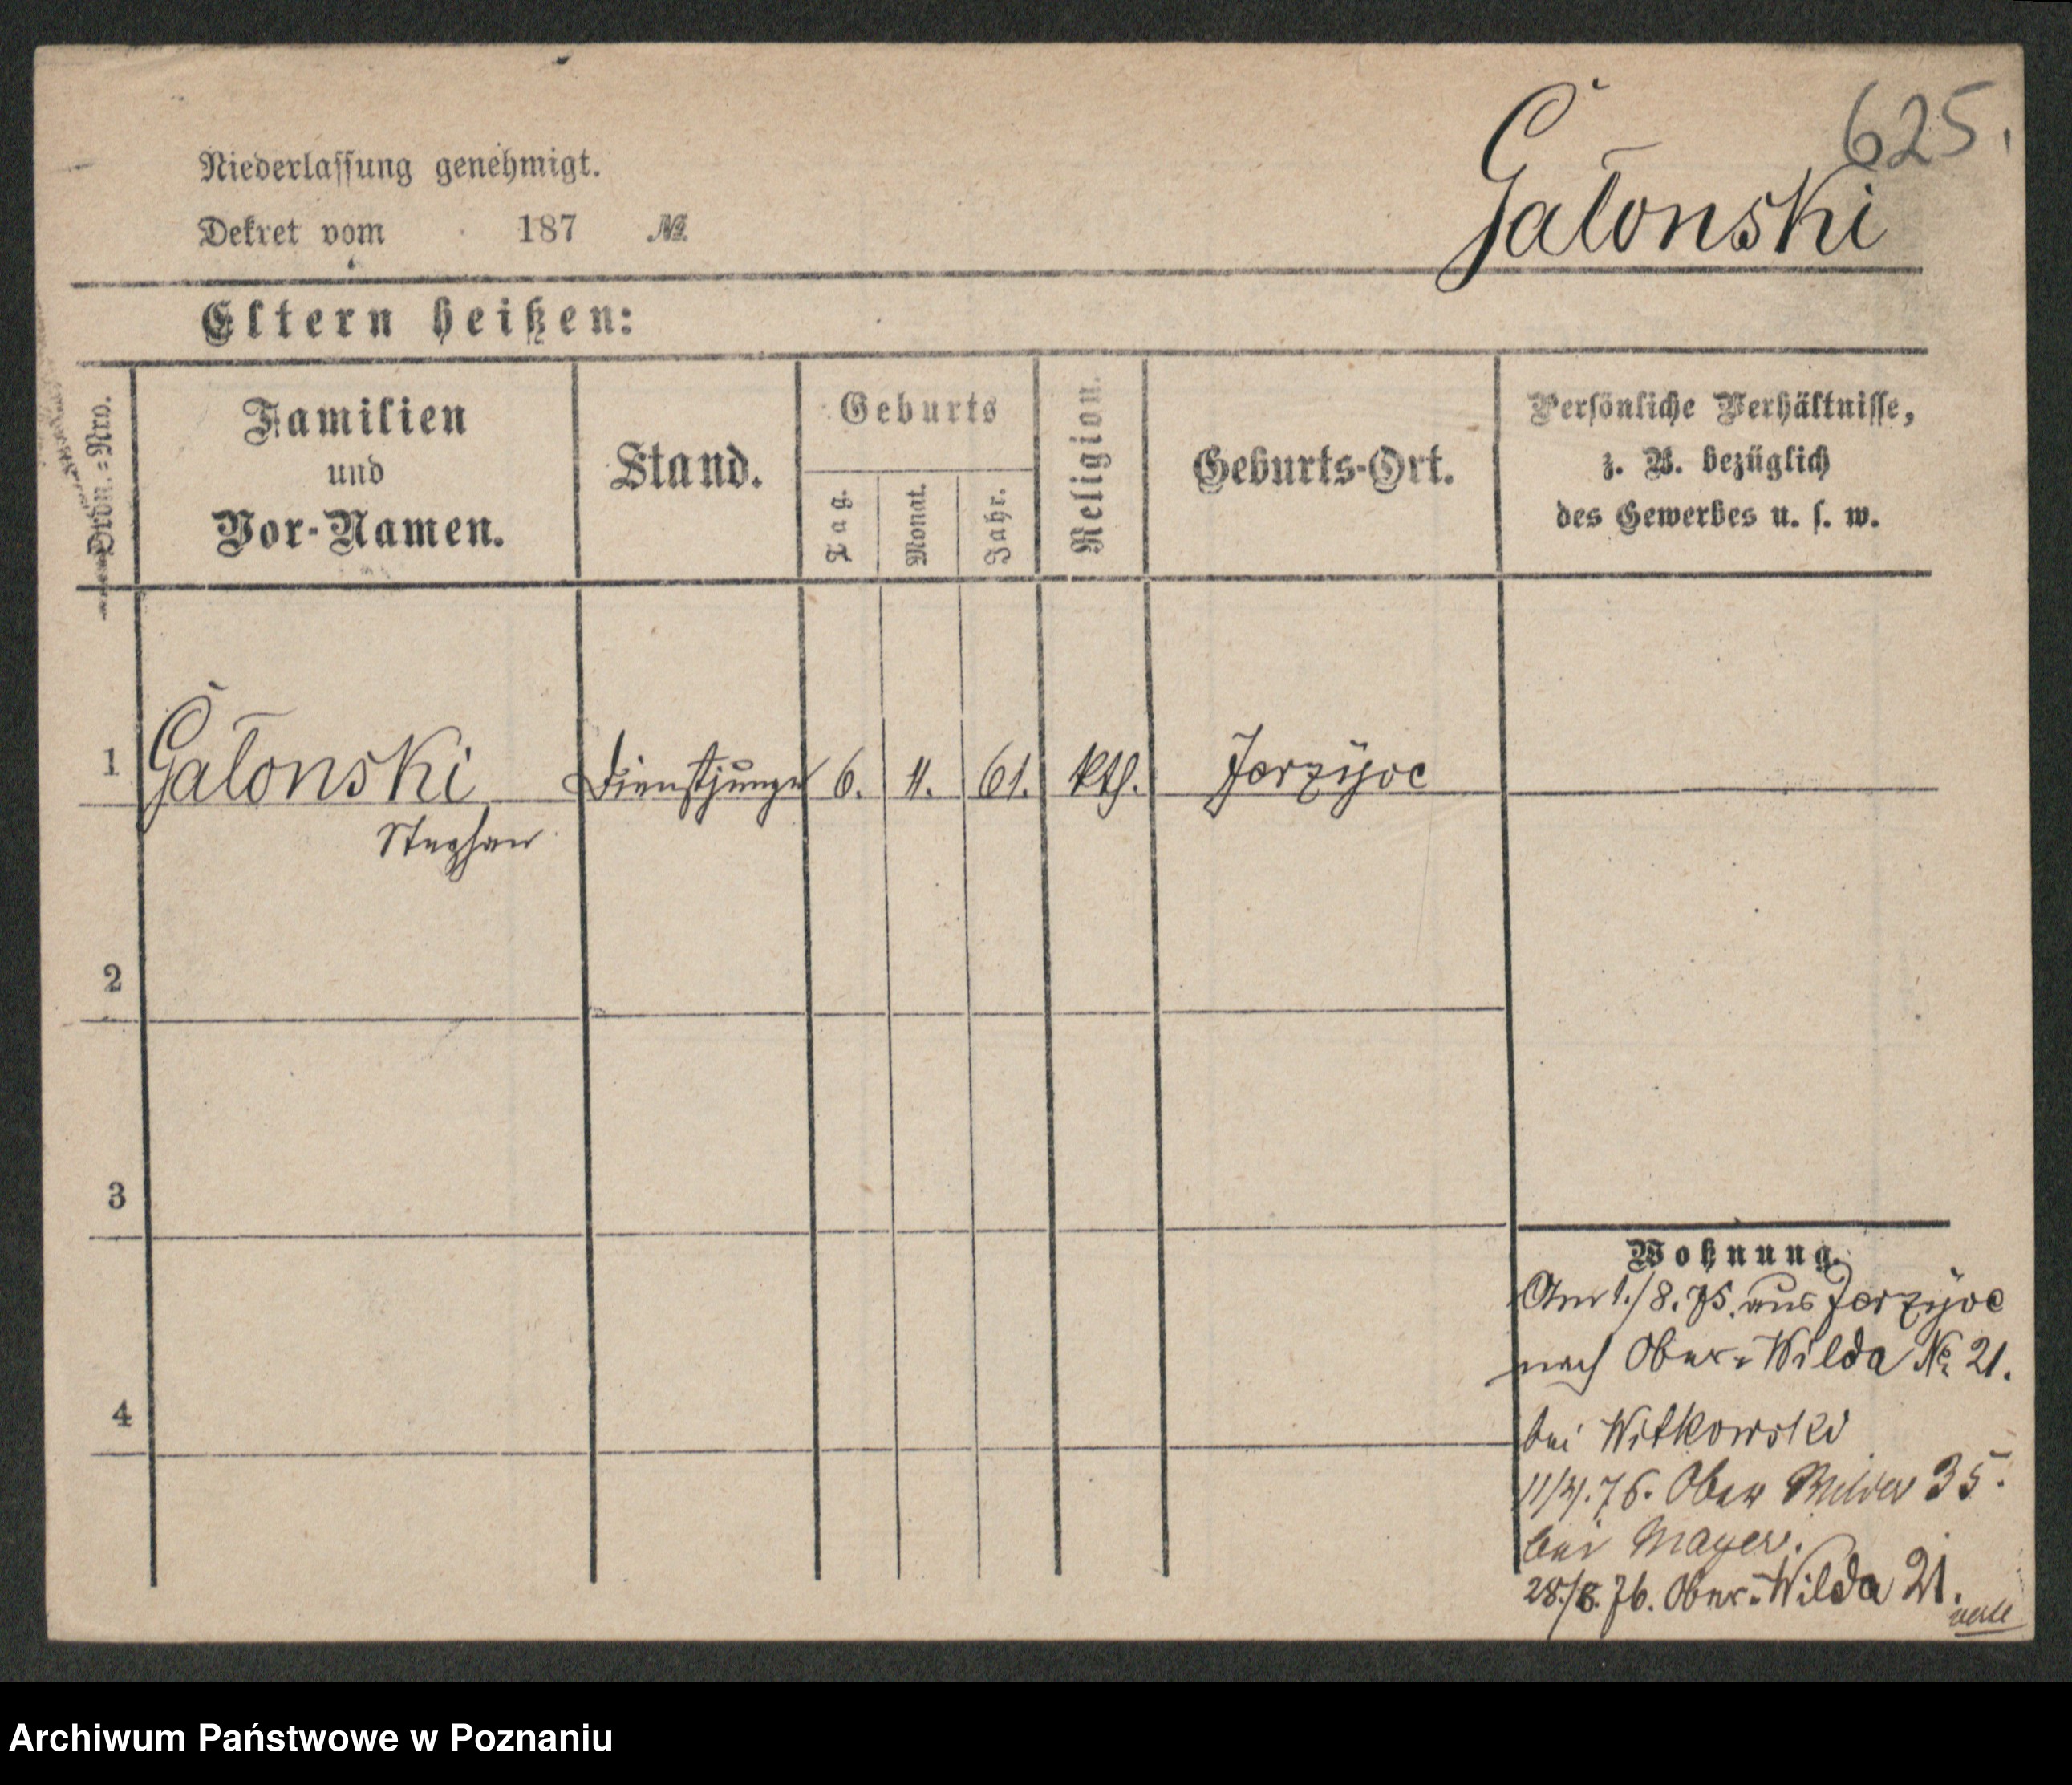 625.
Gałonski
Niederlassung genehmigt.
Dekret vom 187 №
Eltern heißen:
Ordn.=Nro.
Familien
und
Vor-Namen.
Stand.
Geburts
Tag.
Monat.
Jahr.
Religion.
Geburts-Ort.
Persönliche Verhältnisse,
z. B. bezüglich
des Gewerbes u. s. w.
1 Gałonski Dienstjunge 6. 11. 61. kth. Jerzyce
Stephan
2
3
4
Wohnung.
Am 1./8. 75. aus Jerzyce
nach Ober-Wilda № 21.
bei Witkowski
76. Ober Wilda 35.
bei Mayer.
28./8. 76. Ober-Wilda 21.
Archiwum Państwowe w Poznaniu